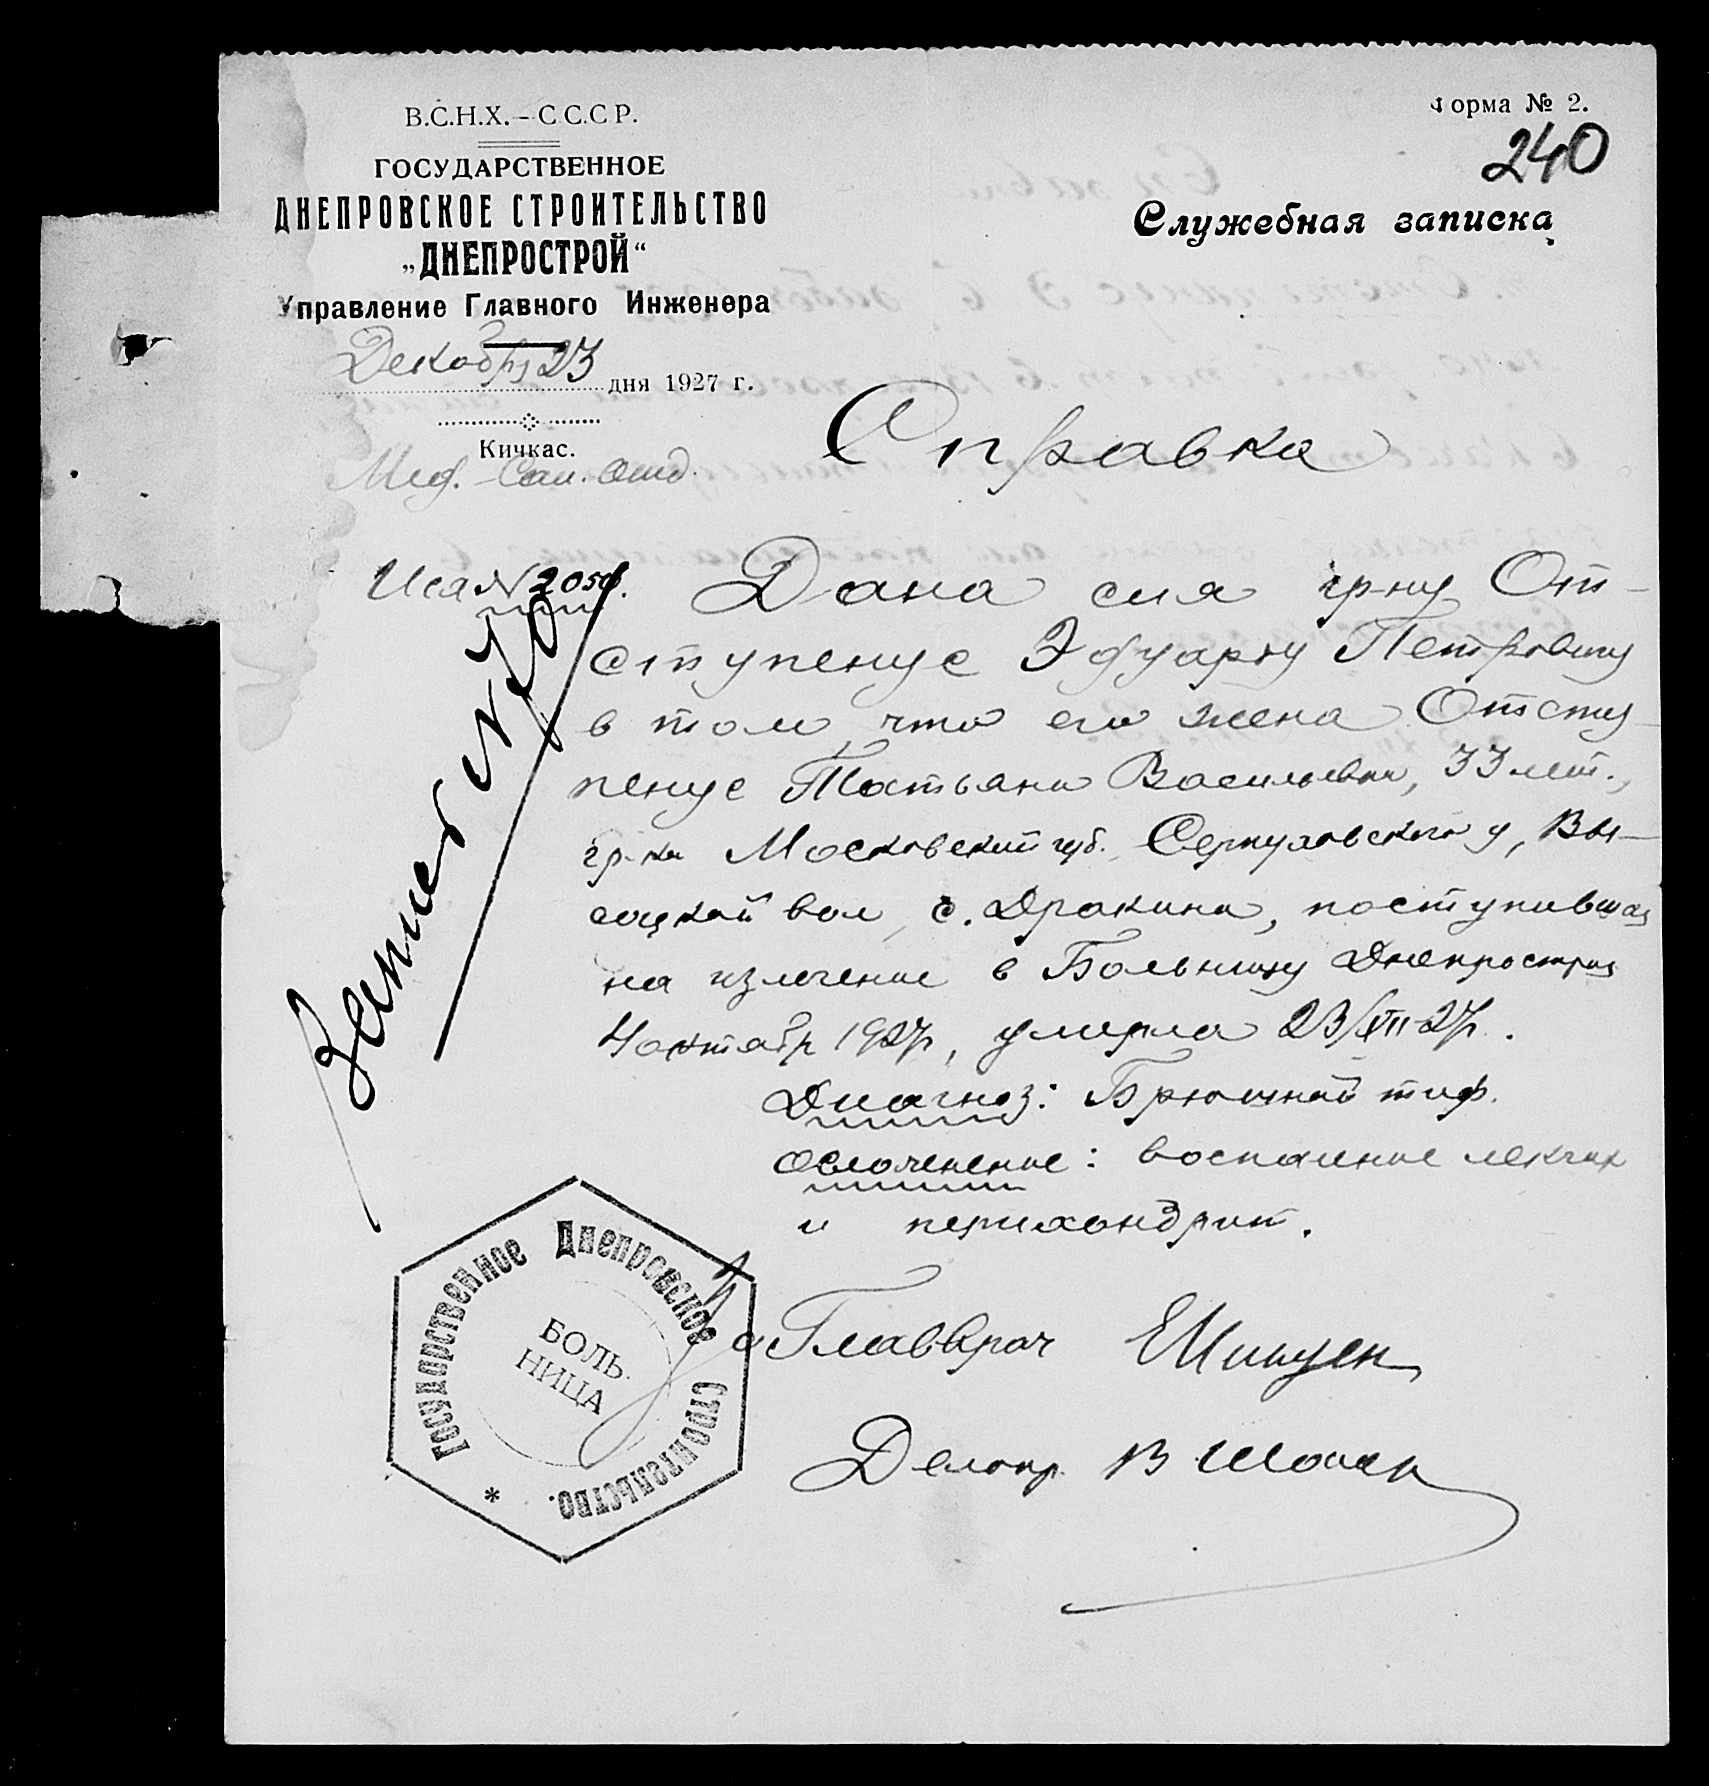 В.С.Н.Х. – С С.С Р.
ГОСУДАРСТВЕННОЕ
ДНЕПРОВСКОЕ СТРОИТЕЛЬСТВО
„ДНЕПРОСТРОЙ“
Управление Главного Инженера
Декабря 23 дня 1927 г.
Кичкас.
Мед. - Сан. Отд.
Форма № 2.
240
Служебная записка
Справка
Исх № 2058.
Дана сия гр-ну От-
ступенус Эдуарду Петровичу
в том, что его жена Отсту-
пенус Татьяна Васильевна, 33 лет.,
гр-ка Московский губ. Серпуховского у, Вы-
соцкой вол, с. Дракина, поступившая
на излечение в Больницу Днепростроя
4 октябр 1927г, умерла 23/XII-27г.
Диагноз: Брюшной тиф.
осложенение: воспаление легких
и перихондрит.
За Главврач
Делопр. В
Запись № 70
Государственное Днепровское Строительство.
БОЛЬ-
НИЦА